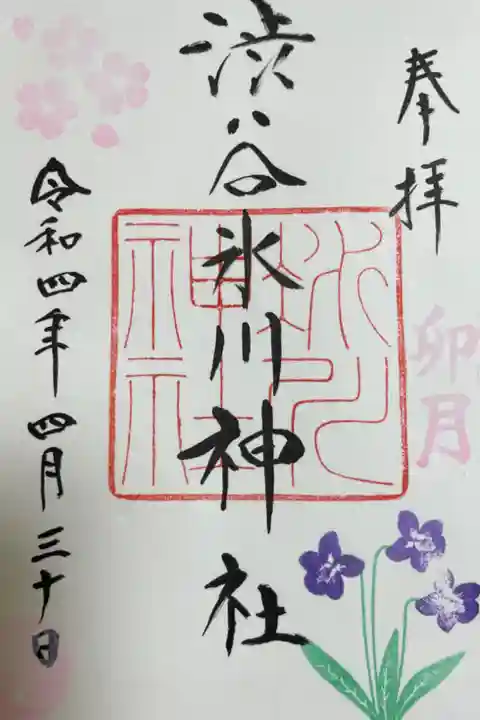 奉拝
卯月
渋谷氷川神社
氷川
神社
令和四年四月三十日